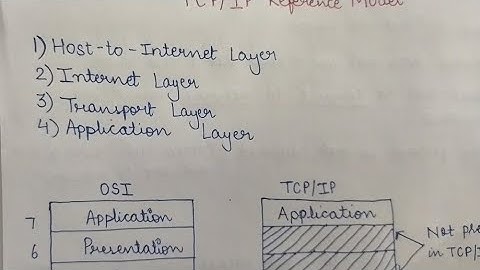 TCP/IP Reference Model
1) Host-to-Internet Layer
2) Internet Layer
3) Transport Layer
4) Application Layer
OSI TCP/IP
7 Application Application
6 Presentation Not
in TCP/